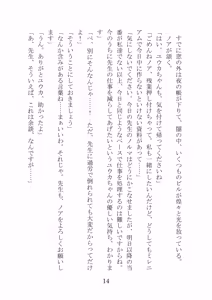 すでに窓の外は夜の帳が下りて、闇の中、いくつものビルが煌々と光を放っている。
「はい、ユウカちゃんも、気をつけて帰ってくださいね」
「ごめんねノア、残業押し付けちゃって。私も一緒にしたいんだけど、どうしてもミレニアムで今日中に作らないといけない資料があって……」
「気にしないでください。今日の先生のノルマはここまでで出来ましたが、明日以降の当番が私でない以上、今日と同じようなペースで仕事を処理するのは難しいですからね。今日のうちに先生の仕事を減らしてあげたいユウカちゃんの優しい気持ち、わかりますよ」
「べ、別にそんなんじゃ……！　ただ、先生に過労で倒れられても大変だからだって」
「そういうことにしておきましょう」
「なんか含みのある言葉ね……まあいいわ、先生も、ノアをよろしくお願いします」
「うん、ありがとユウカ、助かったよ」
「あ、先生。そういえば、これは余談、なんですが……」
14